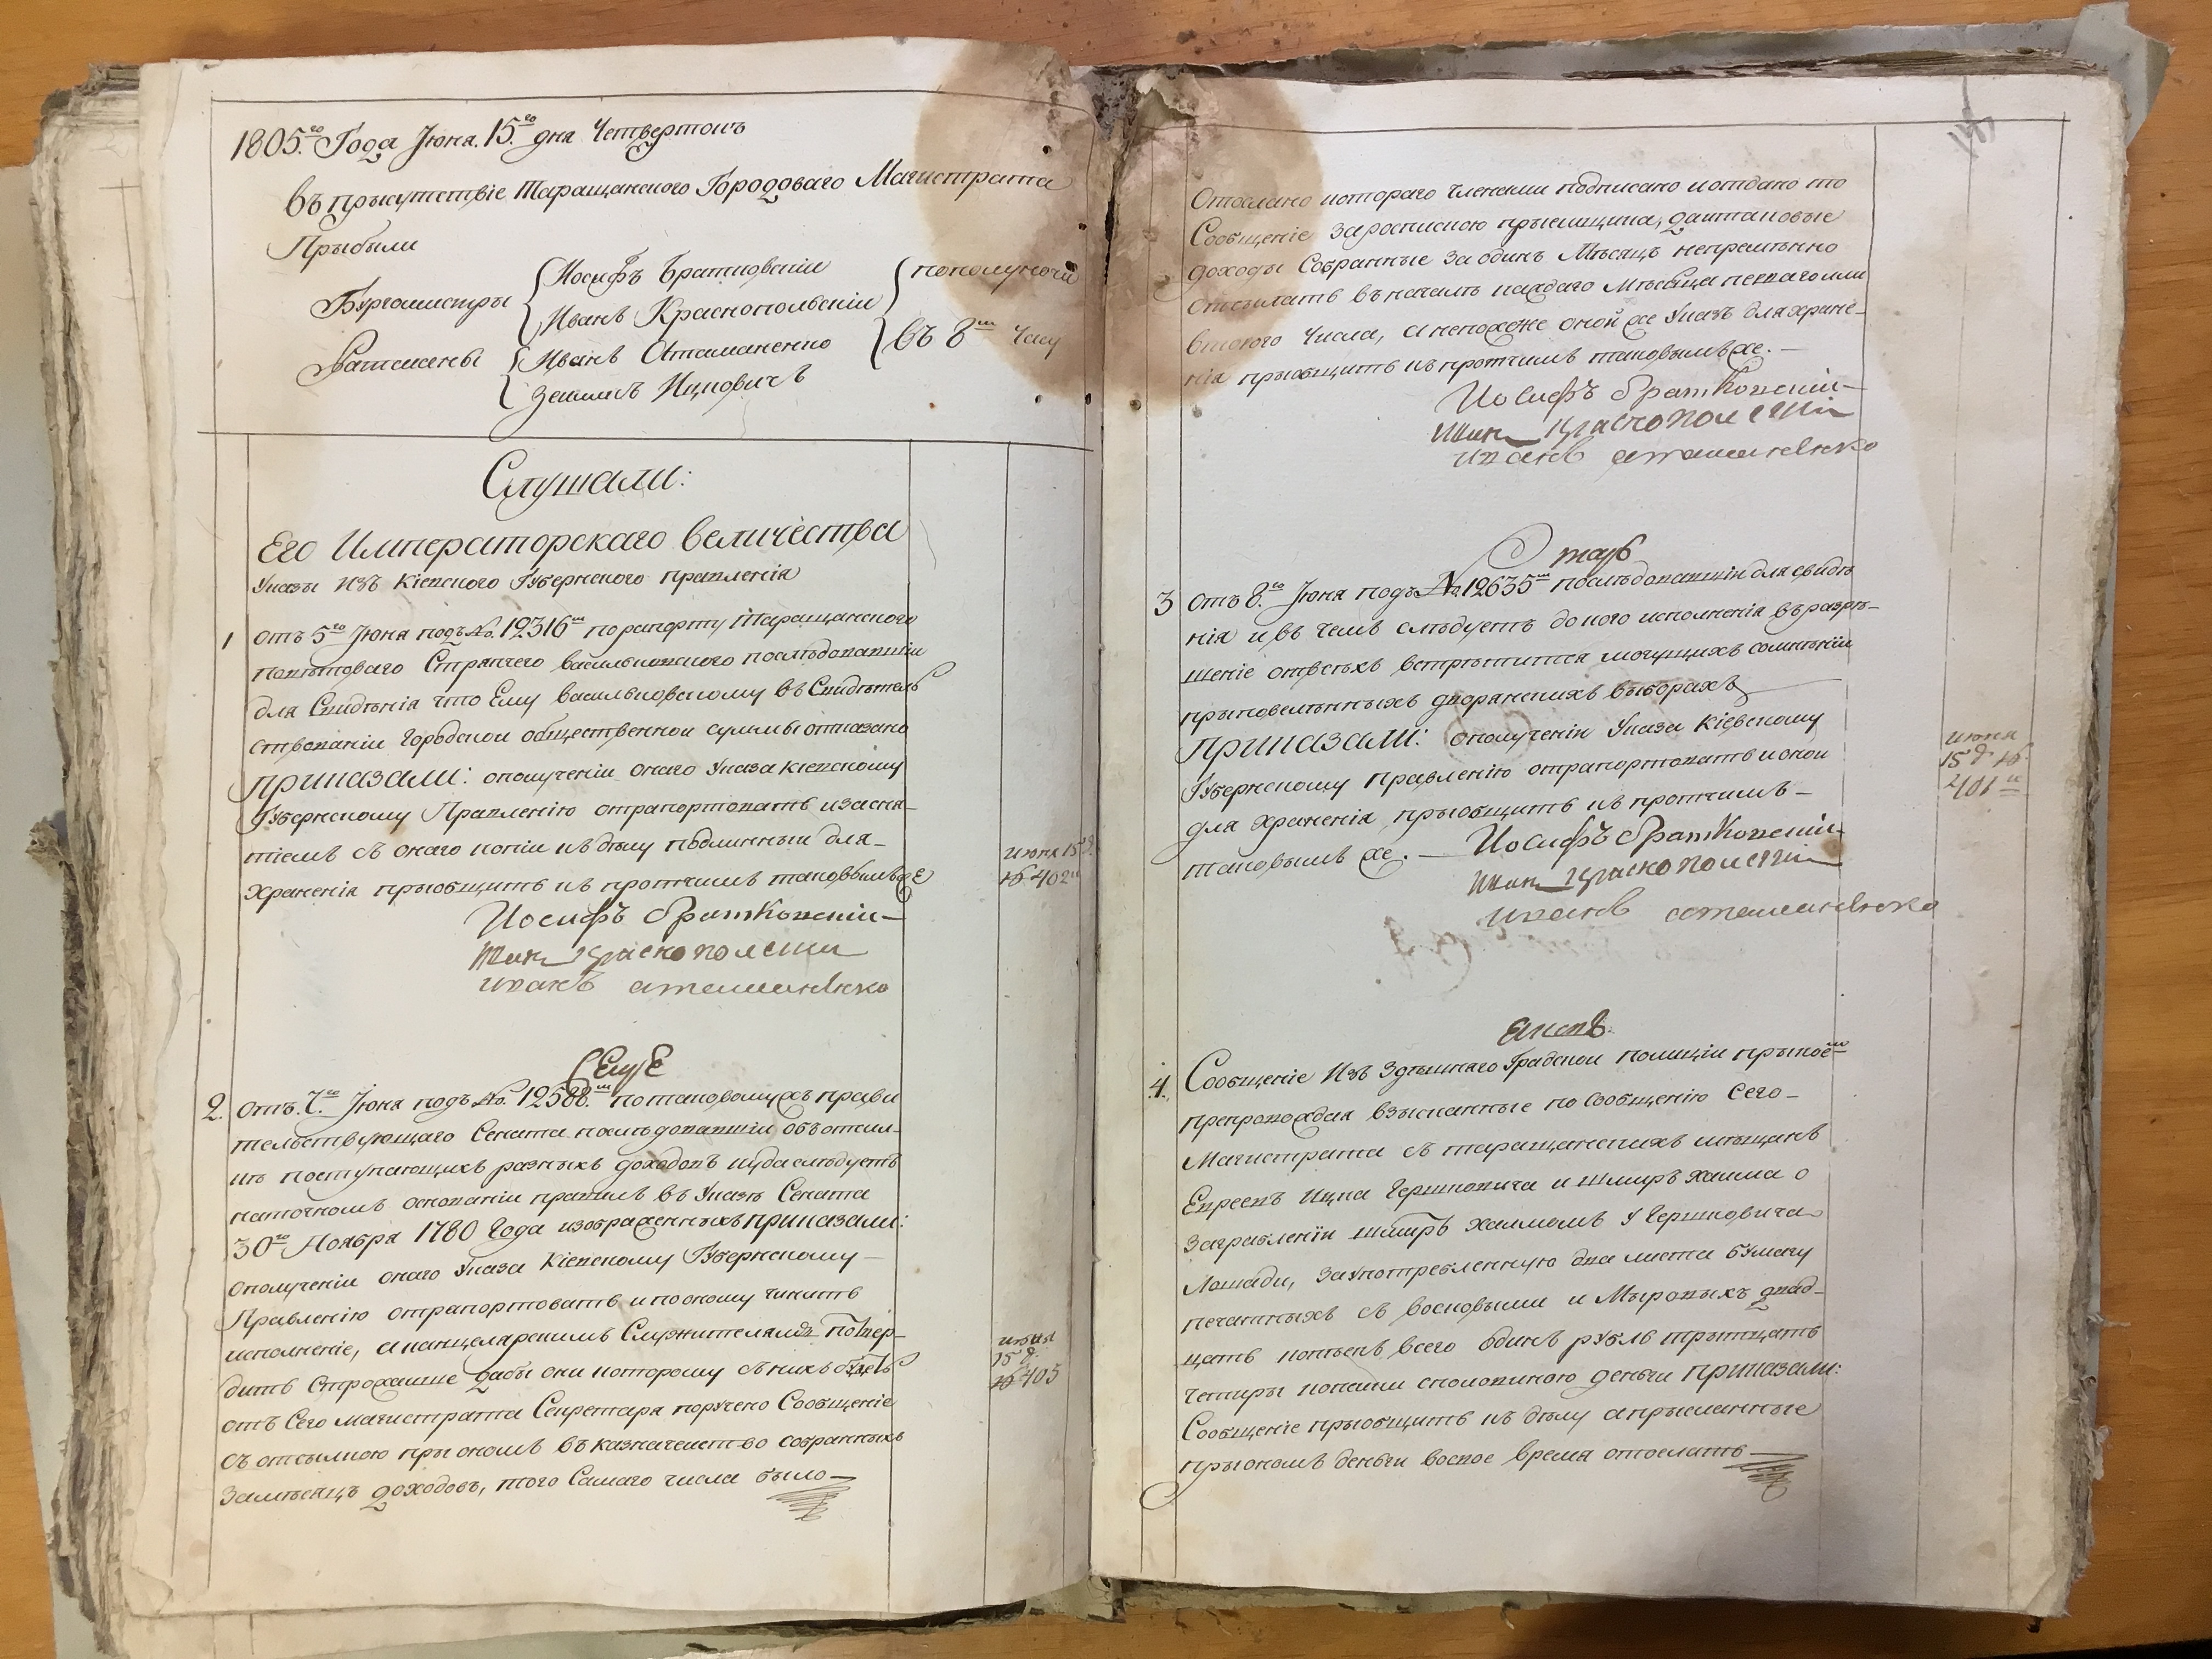 1805.го Года Июня. 15.го дня Четвертокъ
въ присутствіе Таращанского Городоваго Магистрата
Прыбыли
Бургомистры { Иосифъ Братковскій } пополуночи
Иванъ Краснопольскій
Ратсмены { Иванъ Атаманенко } въ 8м часу
Зелманъ Ицковичъ
Слушали:
Его Императорскаго величества
Указы Изъ Кіевского Губернского правленія
1 отъ 5го Июня подъ No. 12316м порапорту Таращанского
повѣтоваго Стряпчего васильковского послѣдовавшій
для Свидѣнія что Ему васильковскому въ Свидѣтель
ствованіи городской общественной суммы отказано
приказали: ополученіи онаго Указа кіевскому
Губернскому Правленію отрапортовать изасня-
тіемъ съ онаго копіи къ дѣлу подлинный для-
храненія пріобщить къ протчимъ таковымъ же
июня 15 д.
No 402м
Иосифъ Братковскій-
Иван Краснополский
иванъ атаманенко
Еще
2. Отъ. 7.го Июня подъ No. 12588.м по таковому жъ прави
тельствующаго Сената послѣдовавшій объ отсил-
кѣ поступающихъ разныхъ доходовъ куда слѣдуетъ
наточномъ основаніи правилъ въ Указѣ Сената
30го Ноября 1780 Года изображенныхъ приказали:
ополученіи онаго Указа Кіевскому Губернскому-
Правленію отрапортовать и по оному чинить
исполненіе, а канцелярскимъ Служителямъ потвер-
дить строжайше дабы они которому съ нихъ будетъ
отъ Сего магистрата Секретара поручено Сообщеніе
съ отсылкою при ономъ въ казначейство собранныхъ
замѣсяцъ доходовъ, того Самаго числа было-
июня
15 д.
No 405
Отослано котораго членами подписано и отдано то
Сообщеніе зароспиською пріемщика, да и таковые
доходы Собранные За одинъ Мѣсяцъ непремѣнно
отсылать въ началѣ каждаго Мѣсяца перваго или
втогого числа, а непозже оной же Указъ для хране-
нія пріобщить къ протчимъ таковымъ же.-
Иосифъ Братковскій-
Иван Краснополский
иванъ атаманенко
Такъ
3 отъ 8.го Июня подъ No. 12635м послѣдовавшій для свѣдѣ
нія и въ чемъ слѣдуетъ до кого исполненія въ разрѣ-
шеніе отвсѣхъ встрѣтится могущихъ сомнѣній
приповелѣнныхъ дворанскихъ выборахъ
приказали: ополученіи Указа Кіевскому
Губернскому правленію отрапортовать и оной
для храненія, пріобщить къ протчимъ-
таковымъ же.-
июня
15 д No.
401м
Иосифъ Братковскій-
Иван Краснополский
иванъ атаманенко
4. Сообщеніе Изъ Здѣшняго Градской полиціи при коем
препровождая взысканные по сообщенію Сего-
Магистрата съ таращанскихъ мѣщанъ
Евреевъ Ицка Гершковича и Шмиръ хаима о
Заграбленіи шмиръ хаимомъ у Гершковича
Лошади, за употребленную два листа бумагу
печатныхъ съ восковыми и Мыровыхъ двад-
цать копѣекъ всего одинъ рубль трытцать
четыры копейки споловиною деньги приказали:
Сообщеніе пріобщить къ дѣлу а присланные
при ономъ деньги воское время отослать-